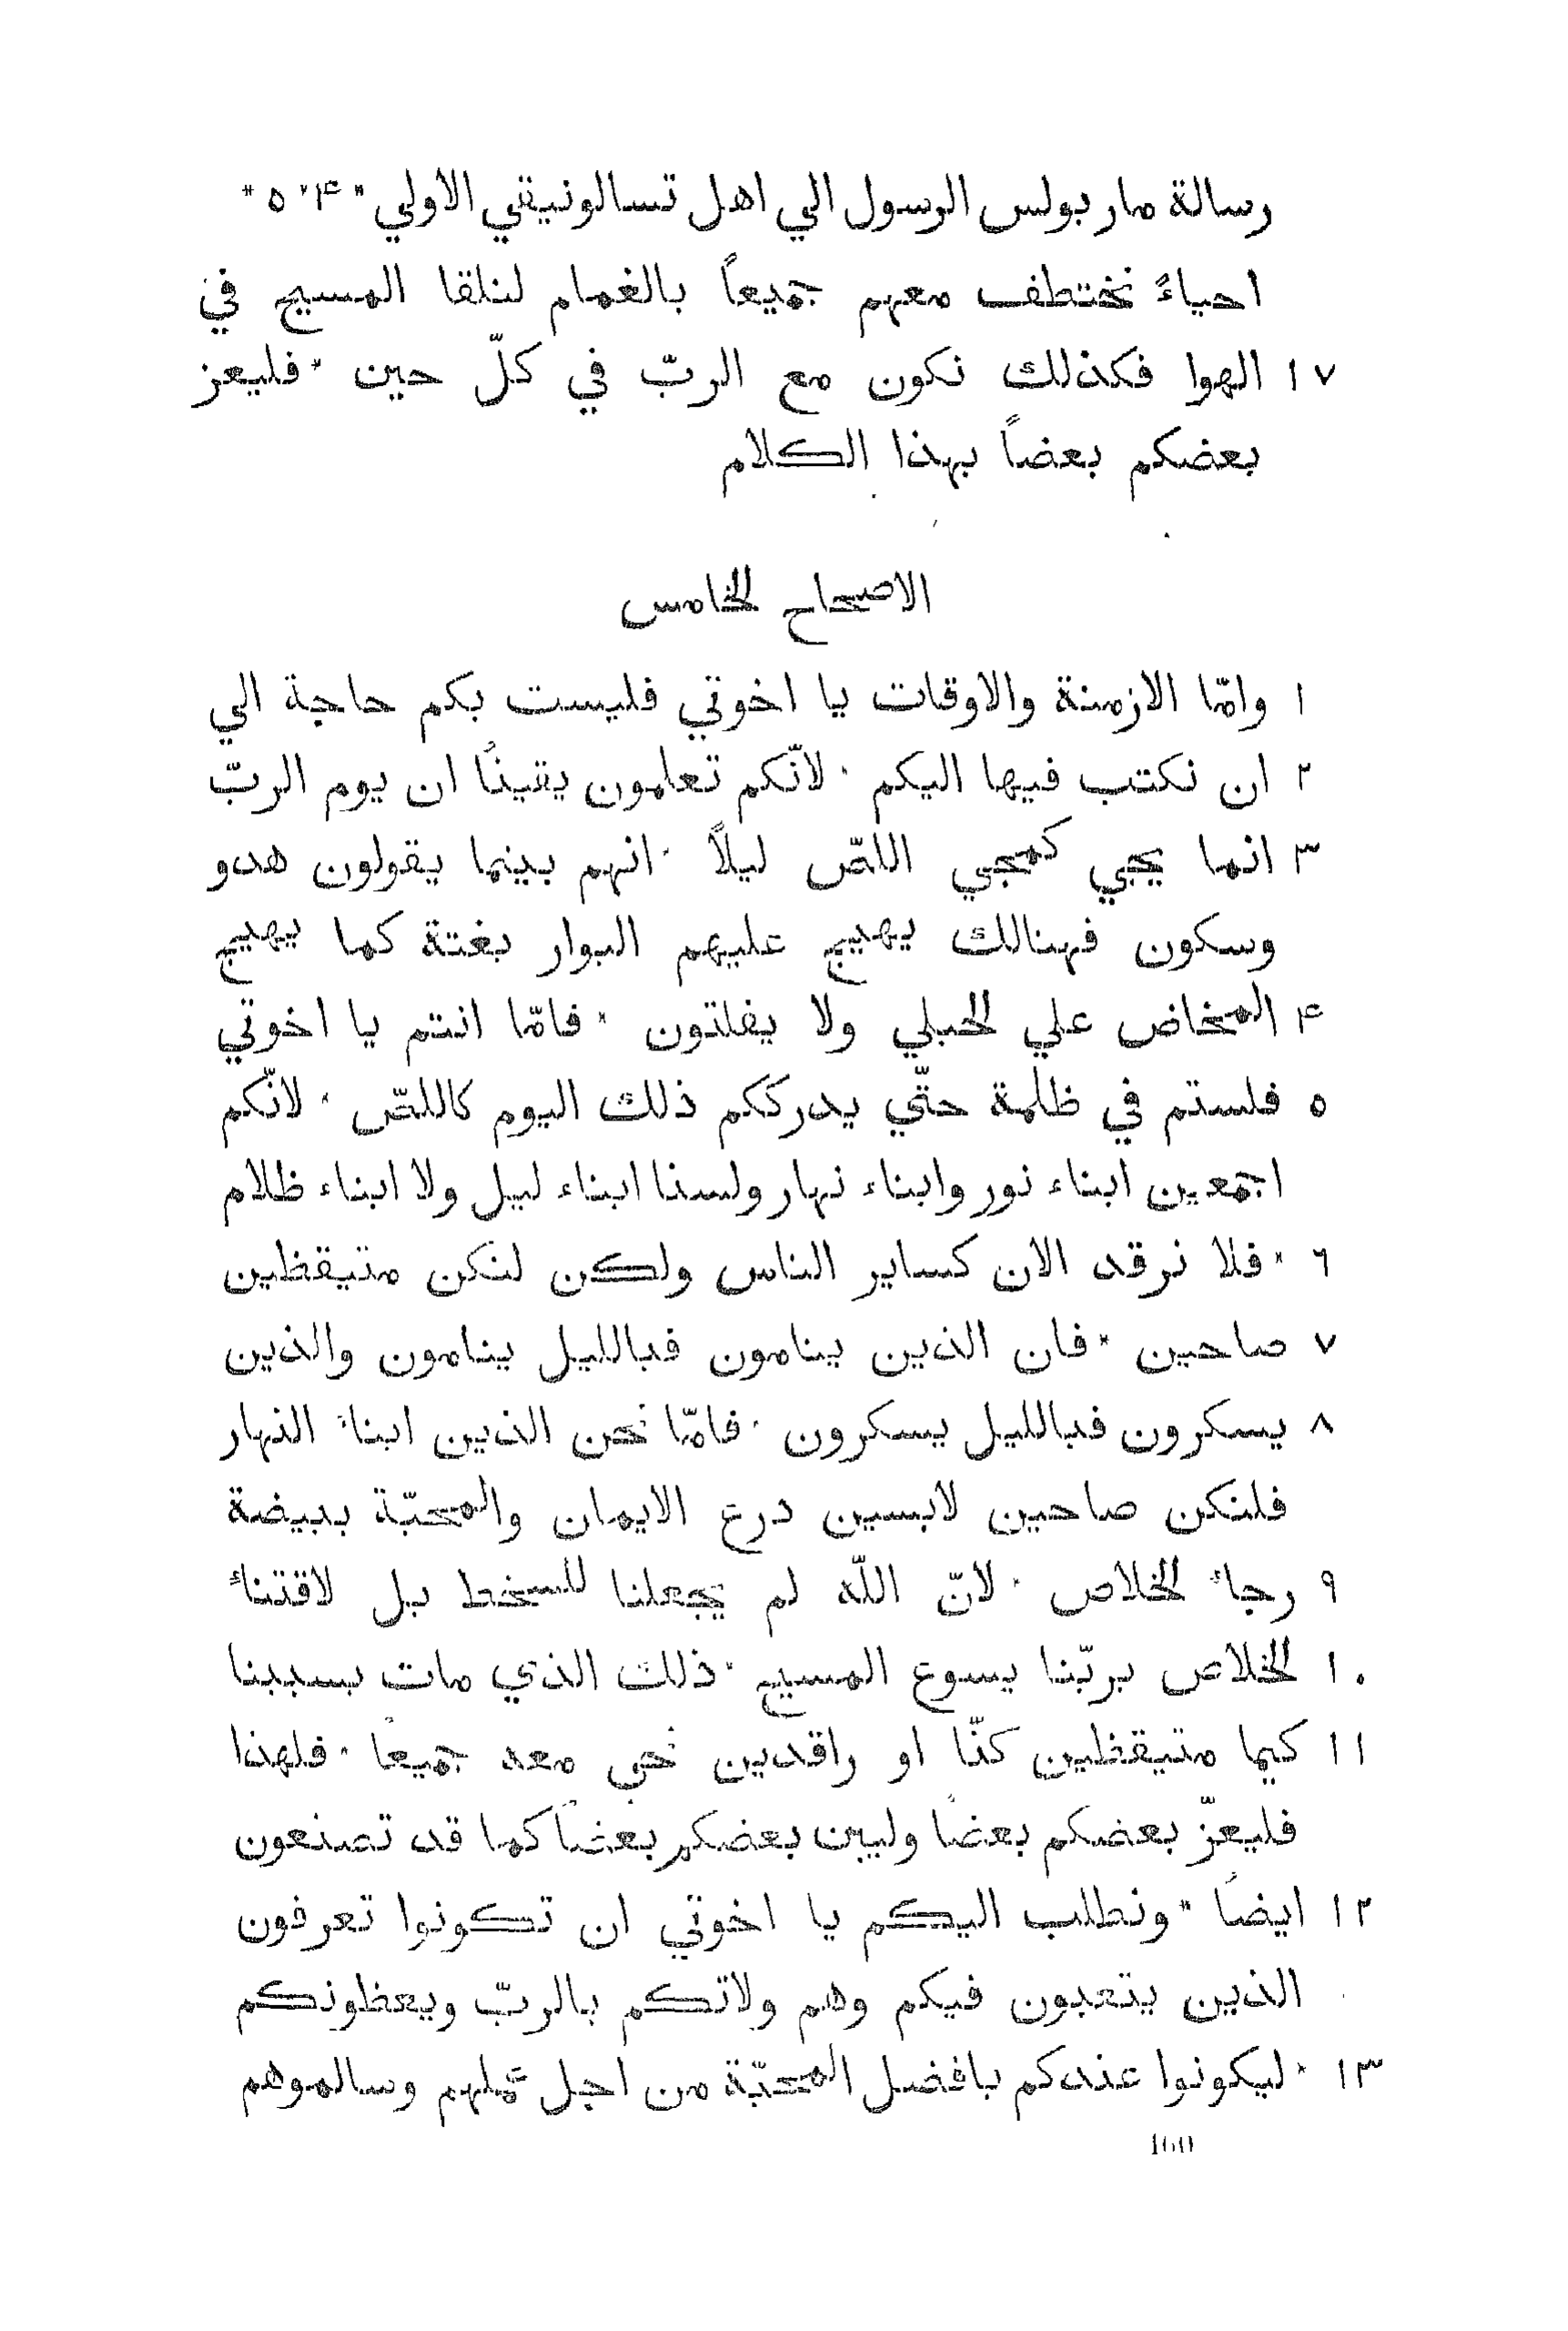 رسالة مار بولس الرسول الي اهل تسالونيقي الاولي * ۴ * ٥ *
احياءً نختطف معهم جميعاً بالغمام لنلقا المسيح في
١٧ الهوا فكذلك نكون مع الربّ في كلّ حين * فليعز
بعضكم بعضاً بهذا الكلام
الاصحاح الخامس
١ وامّا الازمنة والاوقات يا اخوتي فليست بكم حاجة الي
٢ ان نكتب فيها اليكم * لانّكم تعلمون يقيناً ان يوم الربّ
٣ انما يجي كمجي اللصّ ليلاً * انهم بينما يقولون هدو
وسكون فهنالك يهيج عليهم البوار بغتة كما يهيج
۴ المخاض علي الحبلي ولا يفلتون * فامّا انتم يا اخوتي
٥ فلستم في ظلمة حتّي يدرككم ذلك اليوم كاللصّ * لانّكم
اجمعين ابناء نور وابناء نهار ولسنا ابناء ليل ولا ابناء ظلام
٦ * فلا نرقد الان كساير الناس ولكن لنكن متيقظين
٧ صاحين * فان الذين ينامون فبالليل ينامون والذين
٨ يسكرون فبالليل يسكرون * فامّا نحن الذين ابناء النهار
فلنكن صاحين لابسين درع الايمان والمحبّة ببيضة
٩ رجاء الخلاص * لانّ اللّه لم يجعلنا للسخط بل لاقتناء
١٠ الخلاص بربّنا يسوع المسيح * ذلك الذي مات بسببنا
١١ كيما متيقظين كنّا او راقدين نحي معه جميعاً * فلهذا
فليعزّ بعضكم بعضاً وليبن بعضكم بعضاً كما قد تصنعون
١٢ ايضاً * ونطلب اليكم يا اخوتي ان تكونوا تعرفون
الذين يتعبون فيكم وهم ولاتكم بالربّ ويعظونكم
١٣ * ليكونوا عندكم بافضل المحبّة من اجل عملهم وسالموهم
160